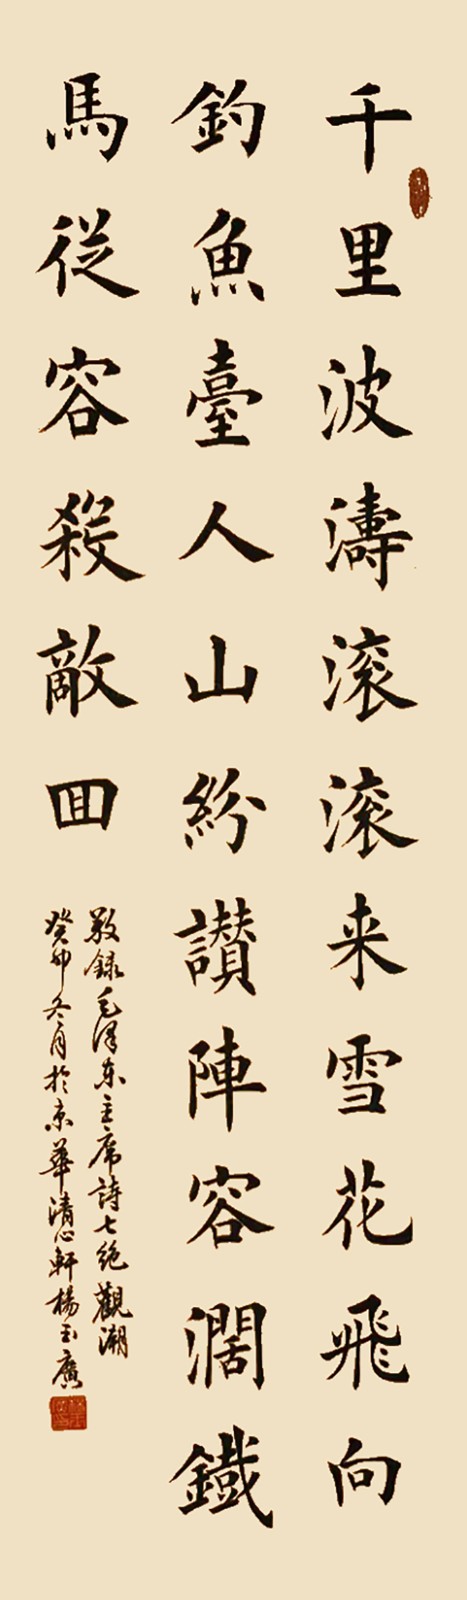 千里波濤滚滚来雪花飛向
釣魚臺人山紛讃陣容濶鐵
馬從容殺敵回
敬録毛澤东主席詩七绝觀潮
癸卯冬月於京華清心軒楊玉廣